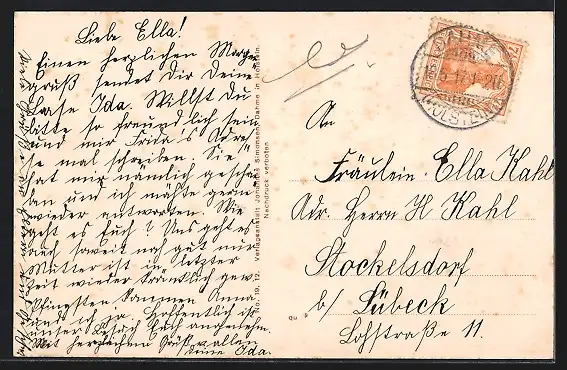 Liebe Ella!
Einen herzlichen Morgen
gruß sendet Dir Deine
Base Ida. Willst Du
bitte so freundlich sein
und mir Frida's Adres
se mal schreiben. Sie
hat mir nämlich geschrie
ben und ich möchte gern
wieder antworten. Wie
geht es Euch? Uns geht es
auch soweit noch gut nur
Mutter ist in letzter
Zeit wieder kränklich gew.
Pfingsten kommen Anna
und ich ja. Hoffentlich ist
unser Besuch Euch angenehm.
Mit herzlichen Grüß. v. allen
Deine Ida.
No. 19, 12. Verlagsanstalt Johannes Simonsen, Dahme in Holstein.
Nachdruck verboten
An
Fräulein Ella Kahl
Adr. Herrn H Kahl
Stockelsdorf
b/ Lübeck
Lohstraße 11.